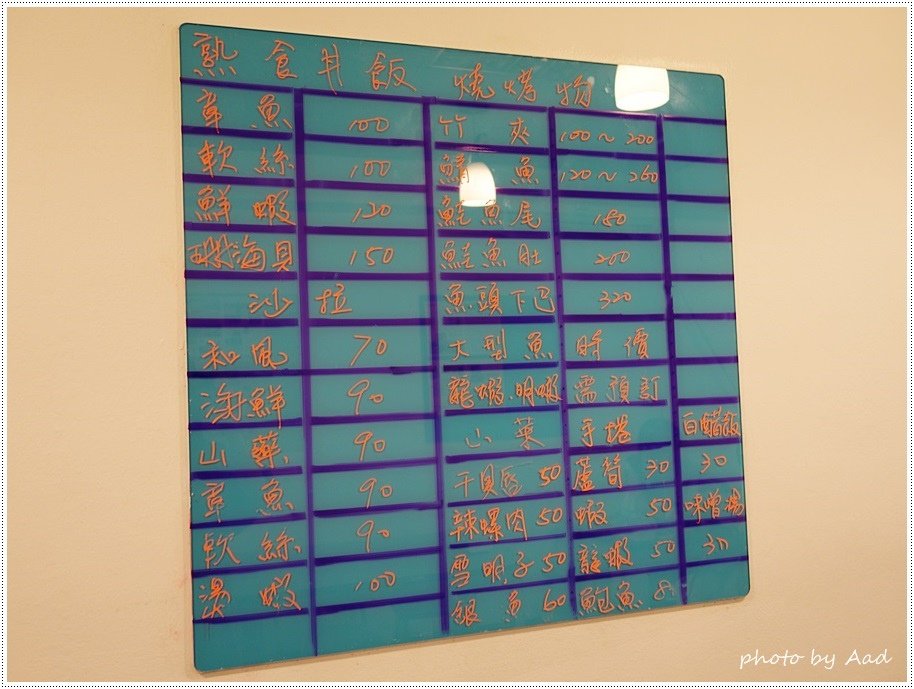 熟食丼飯 燒烤物
章魚 100 竹夾 100~200
軟絲 100 鯖魚 120~260
鮮蝦 120 鮭魚尾 180
海貝 150 鮭魚肚 200
沙拉 魚頭下巴 320
和風 70 大型魚 時價
海鮮 90 龍蝦.明蝦 需預訂
山藥 90 山葵 手捲 白醋飯
章魚 90 干貝唇 50 蘆筍 30 30
軟絲 90 辣螺肉 50 蝦 50 味噌湯
湯蝦 100 雪明子 50 龍蝦 50 30
銀魚 60 鮑魚
photo by Aad